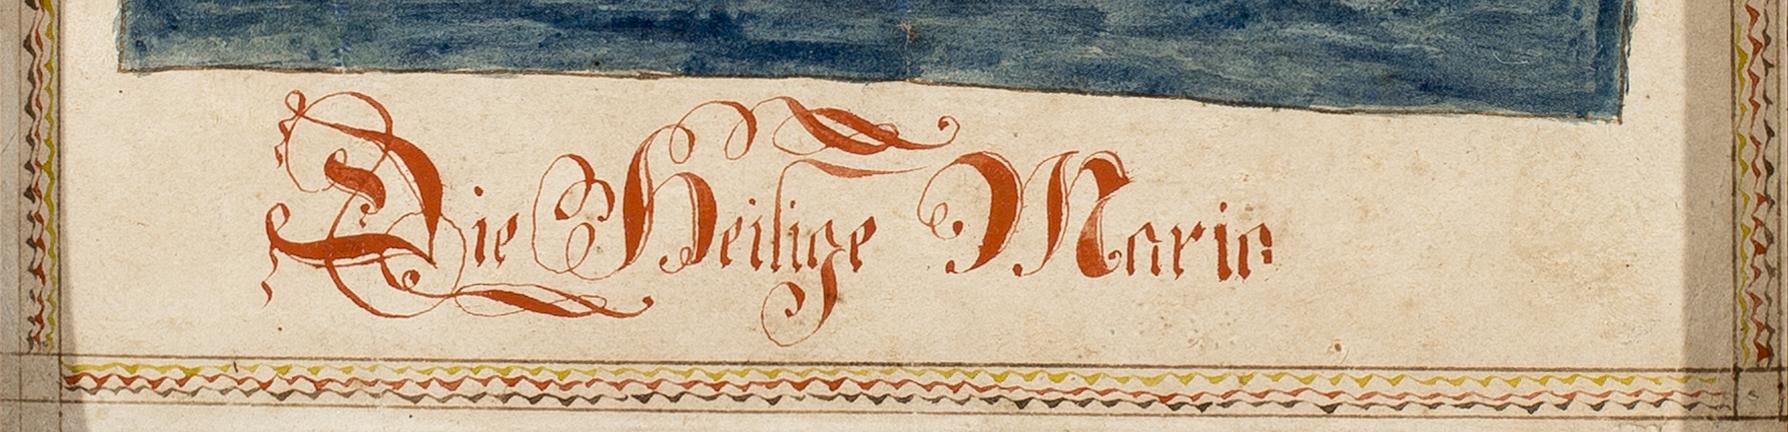 Die Heilige Maria